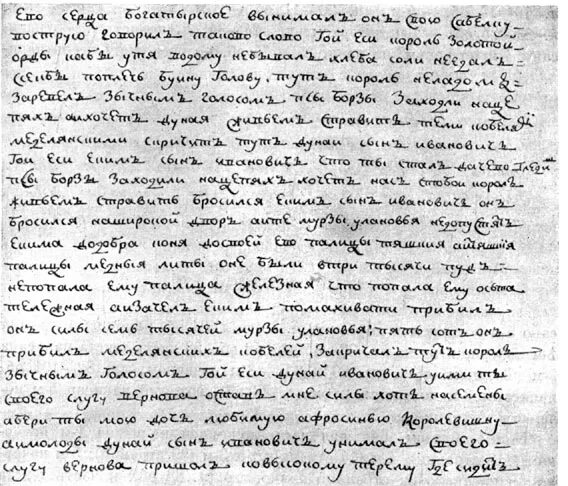 Ево серца богатырское вынималъ онъ свою сабелку
вострую говорилъ таково слово Гой еси король Золотой
орды кабъ утя вдому небывалъ хлеба соли неедалъ
ссекбъ поплечь буйну Голову, тутъ король неладомъ
Заревелъ Зычнымъ голосомъ псы борзы Заходили наце
пяхъ аихочетъ дуная живьемъ стравить теми кобеля
меделянскими скричитъ тутъ дунаи сынъ ивановичъ
Гои еси екимъ сынъ ивановичъ что ты сталъ дачево гледиш
псы борзы Заходили нацепяхъ хочетъ насъ стобои король
живьемъ стравить бросился екимъ сынъ ивановичъ онъ
бросился наширокой дворъ аите мурзы улановья недопустятъ
екима додобра коня досвоей ево палицы тяшкия аитяшкия
палицы медныя литы оне были втри тысячи пудъ
непопала ему палица железная что попала ему осьта
тележная аизачелъ екимъ помахивати прибилъ
онъ силы семь тысячей мурзы улановья, пять сотъ онъ
прибилъ меделянскихъ кобелей, Закричалъ тутъ король
Зычнымъ Голосомъ Гой еси дунай ивановичъ уими ты
своего слугу вернова оставь мне силы хоть насемены
абери ты мою дочь любимую афросинью Королевишну
аимолоды дунай сынъ ивановичъ унималъ своего
слугу вернова пришолъ ковысокому терему Где сидитъ